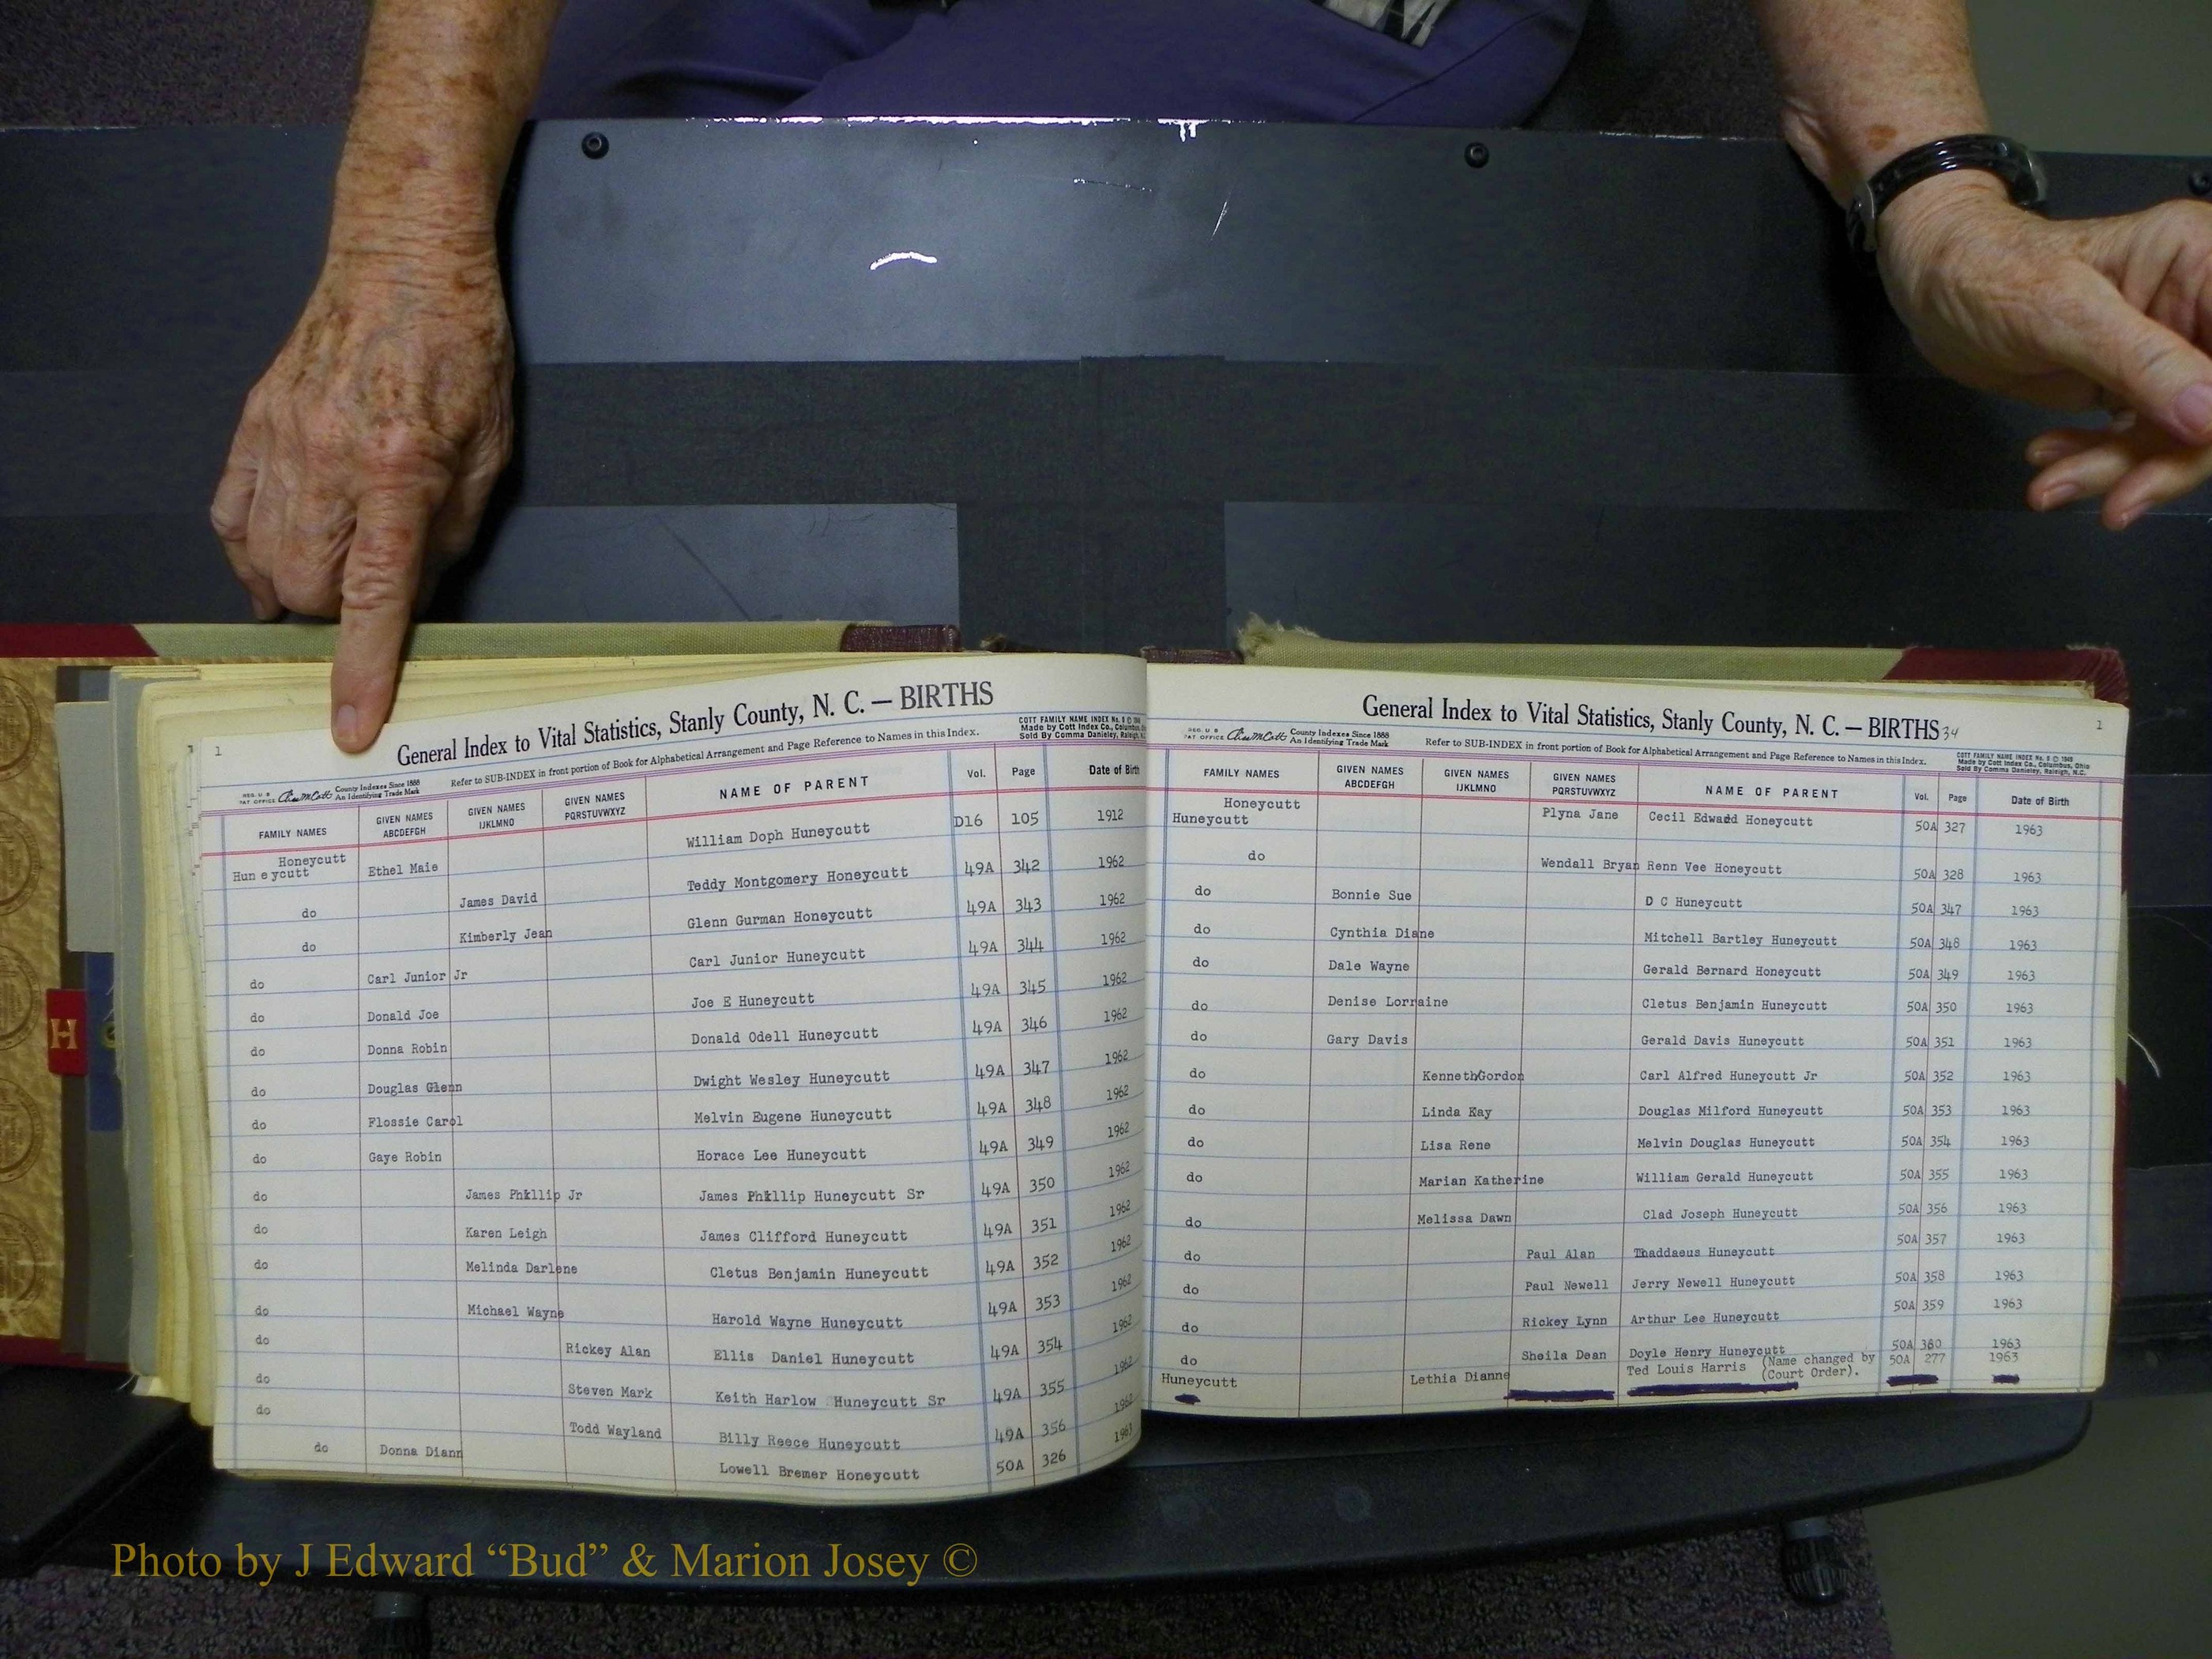 1
General Index to Vital Statistics, Stanly County, N. C. — BIRTHS
COTT FAMILY NAME INDEX No. 8 ©
Made by Cott Index Co., Columbus,
Sold By Comma Danieley, Raleigh,
REG. U S PAT OFFICE County Indexes Since 1888 An Identifying Trade Mark
Refer to SUB-INDEX in front portion of Book for Alphabetical Arrangement and Page Reference to Names in this Index.
FAMILY NAMES GIVEN NAMES ABCDEFGH GIVEN NAMES IJKLMNO GIVEN NAMES PQRSTUVWXYZ NAME OF PARENT Vol. Page Date of Birth
Honeycutt
Huneycutt Ethel Maie William Doph Huneycutt D16 105 1912
do James David Teddy Montgomery Honeycutt 49A 342 1962
do Kimberly Jean Glenn Gurman Honeycutt 49A 343 1962
do Carl Junior Jr Carl Junior Huneycutt 49A 344 1962
do Donald Joe Joe E Huneycutt 49A 345 1962
do Donna Robin Donald Odell Huneycutt 49A 346 1962
do Douglas Glenn Dwight Wesley Huneycutt 49A 347 1962
do Flossie Carol Melvin Eugene Huneycutt 49A 348 1962
do Gaye Robin Horace Lee Huneycutt 49A 349 1962
do James Phillip Jr James Phillip Huneycutt Sr 49A 350 1962
do Karen Leigh James Clifford Huneycutt 49A 351 1962
do Melinda Darlene Cletus Benjamin Huneycutt 49A 352 1962
do Michael Wayne Harold Wayne Huneycutt 49A 353 1962
do Rickey Alan Ellis Daniel Huneycutt 49A 354 1962
do Steven Mark Keith Harlow Huneycutt Sr 49A 355 1962
do Todd Wayland Billy Reece Huneycutt 49A 356 1962
do Donna Diann Lowell Bremer Honeycutt 50A 326 1963
General Index to Vital Statistics, Stanly County, N. C. — BIRTHS 34
1
REG. U S PAT OFFICE County Indexes Since 1888 An Identifying Trade Mark
Refer to SUB-INDEX in front portion of Book for Alphabetical Arrangement and Page Reference to Names in this Index.
COTT FAMILY NAME INDEX No. 8 ©
Made by Cott Index Co., Columbus, Ohio
Sold By Comma Danieley, Raleigh, N.C.
FAMILY NAMES GIVEN NAMES ABCDEFGH GIVEN NAMES IJKLMNO GIVEN NAMES PQRSTUVWXYZ NAME OF PARENT Vol. Page Date of Birth
Honeycutt
Huneycutt Plyna Jane Cecil Edward Honeycutt 50A 327 1963
do Wendall Bryan Renn Vee Honeycutt 50A 328 1963
do Bonnie Sue D C Huneycutt 50A 347 1963
do Cynthia Diane Mitchell Bartley Huneycutt 50A 348 1963
do Dale Wayne Gerald Bernard Honeycutt 50A 349 1963
do Denise Lorraine Cletus Benjamin Huneycutt 50A 350 1963
do Gary Davis Gerald Davis Huneycutt 50A 351 1963
do Kenneth Gordon Carl Alfred Huneycutt Jr 50A 352 1963
do Linda Kay Douglas Milford Huneycutt 50A 353 1963
do Lisa Rene Melvin Douglas Huneycutt 50A 354 1963
do Marian Katherine William Gerald Huneycutt 50A 355 1963
do Melissa Dawn Clad Joseph Huneycutt 50A 356 1963
do Paul Alan Thaddaeus Huneycutt 50A 357 1963
do Paul Newell Jerry Newell Huneycutt 50A 358 1963
do Rickey Lynn Arthur Lee Huneycutt 50A 359 1963
do Sheila Dean Doyle Henry Huneycutt 50A 360 1963
Huneycutt Lethia Dianne Ted Louis Harris (Name changed by 50A 277 1963
(Court Order).
H
Photo by J Edward “Bud” & Marion Josey ©